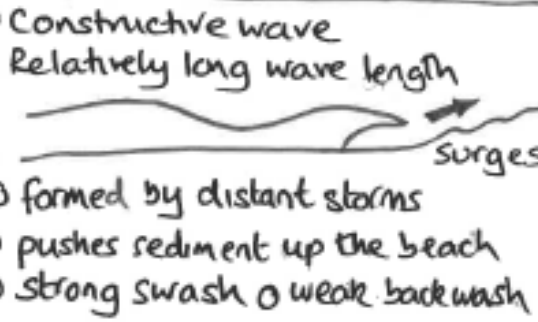 Constructive wave
Relatively long wave length
Surges
formed by distant storms
pushes sediment up the beach
strong swash o weak backwash